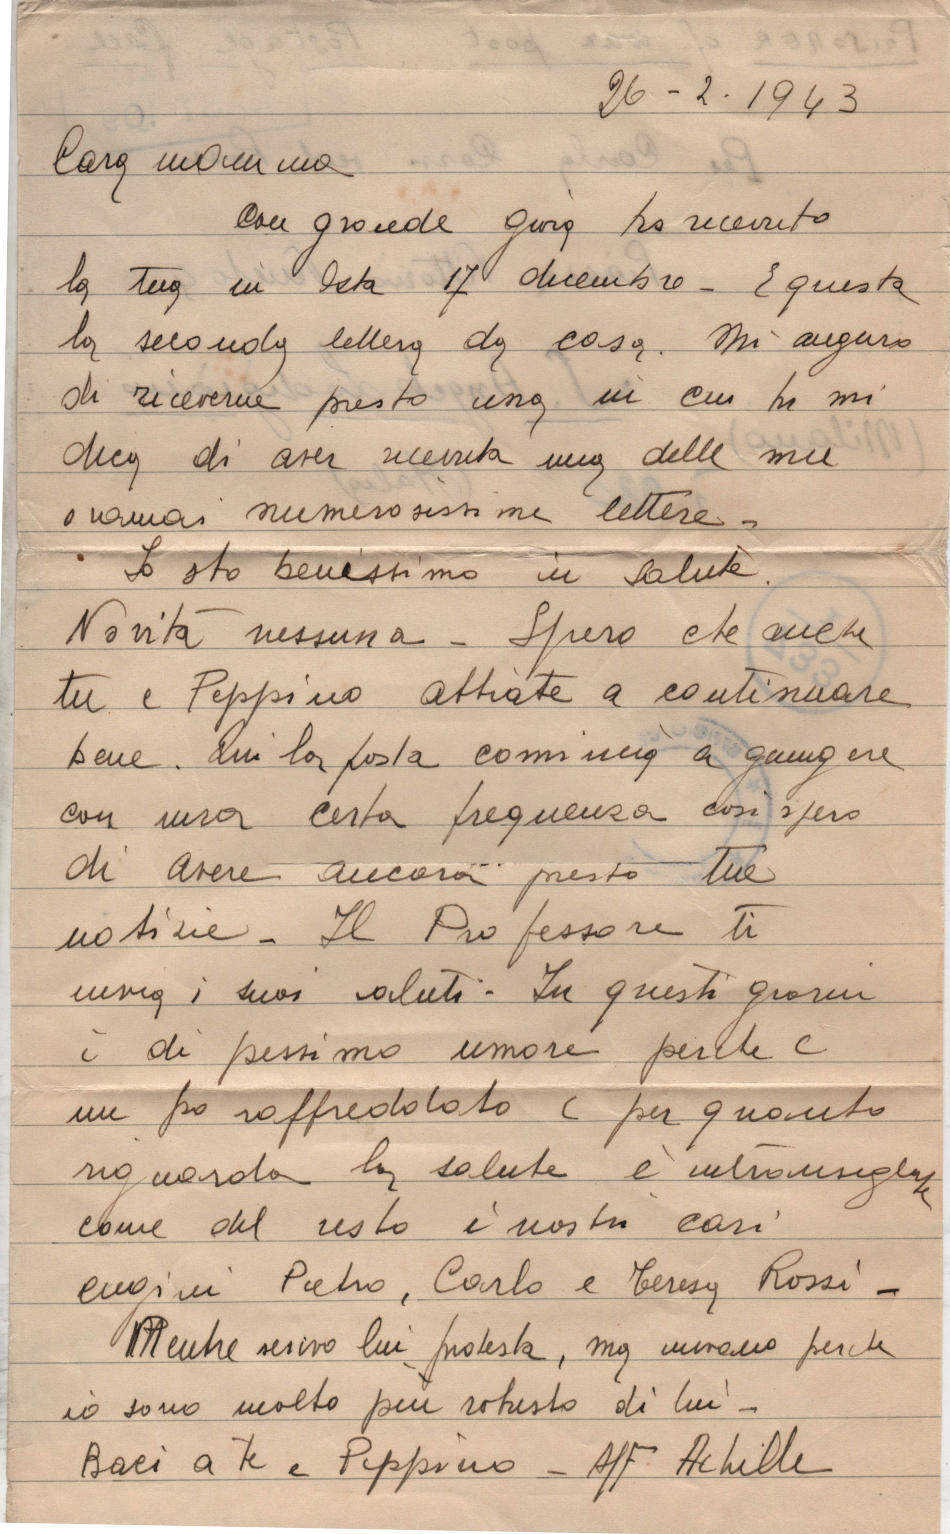 26-2-1943
Cara mamma
con grande gioia ho ricevuto
la tua in data 17 dicembre - È questa
la seconda lettera da casa. Mi auguro
di riceverne presto una in cui tu mi
dica di aver ricevuta una delle mie
oramai numerosissime lettere -
Io sto benissimo in salute.
Novità nessuna - Spero che anche
tu e Peppino abbiate a continuare
bene. Qui la posta comincia a giungere
con una certa frequenza così spero
di avere ancora presto tue
notizie - Il Professore ti
invia i suoi saluti - In questi giorni
è di pessimo umore perché è
un po raffreddato e per quanto
riguarda la salute è
come del resto i nostri cari
cugini Pietro, Carlo e Teresa Rossi -
Mentre scrivo lui protesta, ma invano perché
io sono molto più robusto di lui -
Baci a te e Peppino - Aff Achille